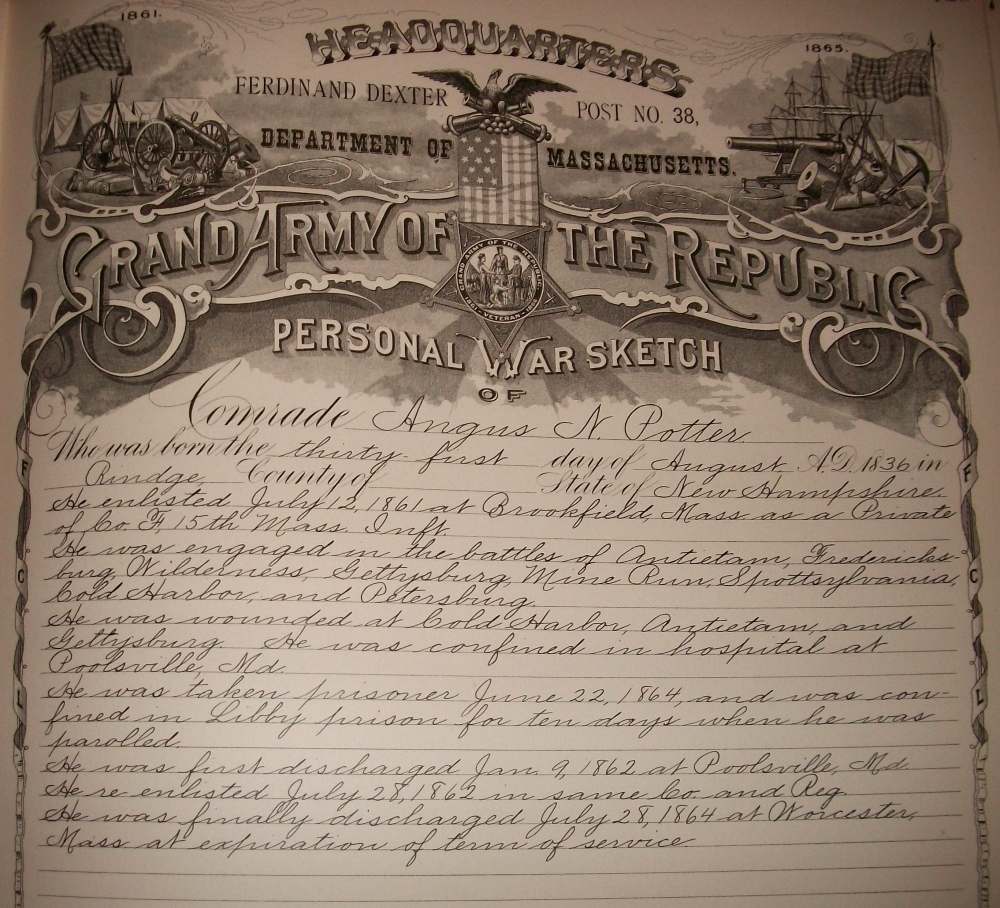 1861.
HEADQUARTERS
1865.
FERDINAND DEXTER POST NO. 38,
DEPARTMENT OF MASSACHUSETTS.
GRAND ARMY OF THE REPUBLIC
GRAND ARMY OF THE REPUBLIC
1861 - VETERAN - 1866
PERSONAL WAR SKETCH
OF
Comrade Angus N. Potter
Who was born the thirty-first day of August A.D. 1836 in
Rindge, County of State of New Hampshire.
He enlisted July 12, 1861 at Brookfield, Mass. as a Private
of Co F, 15th Mass. Inft.
He was engaged in the battles of Antietam, Fredericks-
burg, Wilderness, Gettysburg, Mine Run, Spottsylvania,
Cold Harbor, and Petersburg.
He was wounded at Cold Harbor, Antietam, and
Gettysburg. He was confined in hospital at
Poolsville, Md.
He was taken prisoner June 22, 1864, and was con-
fined in Libby prison for ten days when he was
parolled.
He was first discharged Jan. 9, 1862 at Poolsville, Md.
He re-enlisted July 28, 1862 in same Co. and Reg.
He was finally discharged July 28, 1864 at Worcester,
Mass. at expiration of term of service.
F
C
L
F
C
L